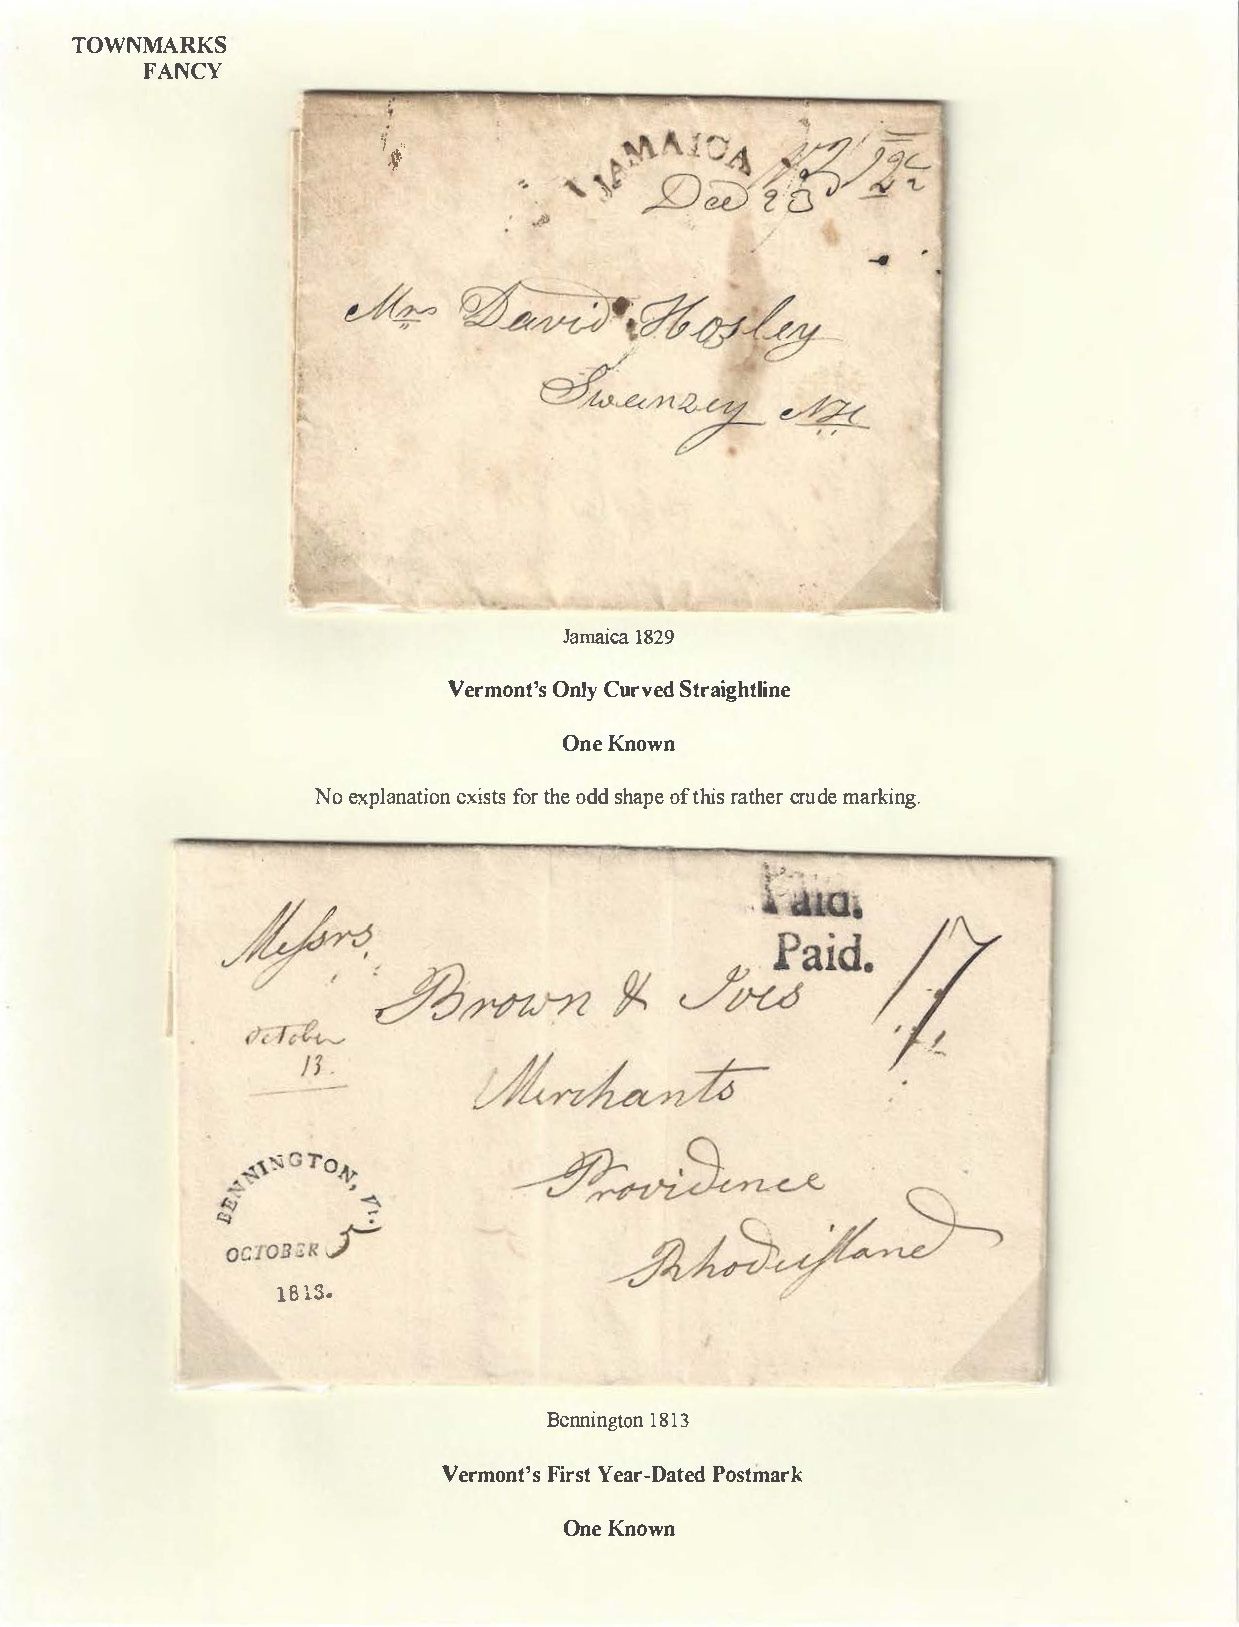 TOWNMARKS
FANCY
JAMAICA
Dec 23
Mrs David Hosley
Swanzey NH
Jamaica 1829
Vermont's Only Curved Straightline
One Known
No explanation exists for the odd shape of this rather crude marking.
Paid.
Paid.
17
Messrs
Brown & Ives
October
13.
Merchants
Providence
Rhodeisland
BENNINGTON, Vt.
OCTOBER 5
1813.
Bennington 1813
Vermont's First Year-Dated Postmark
One Known